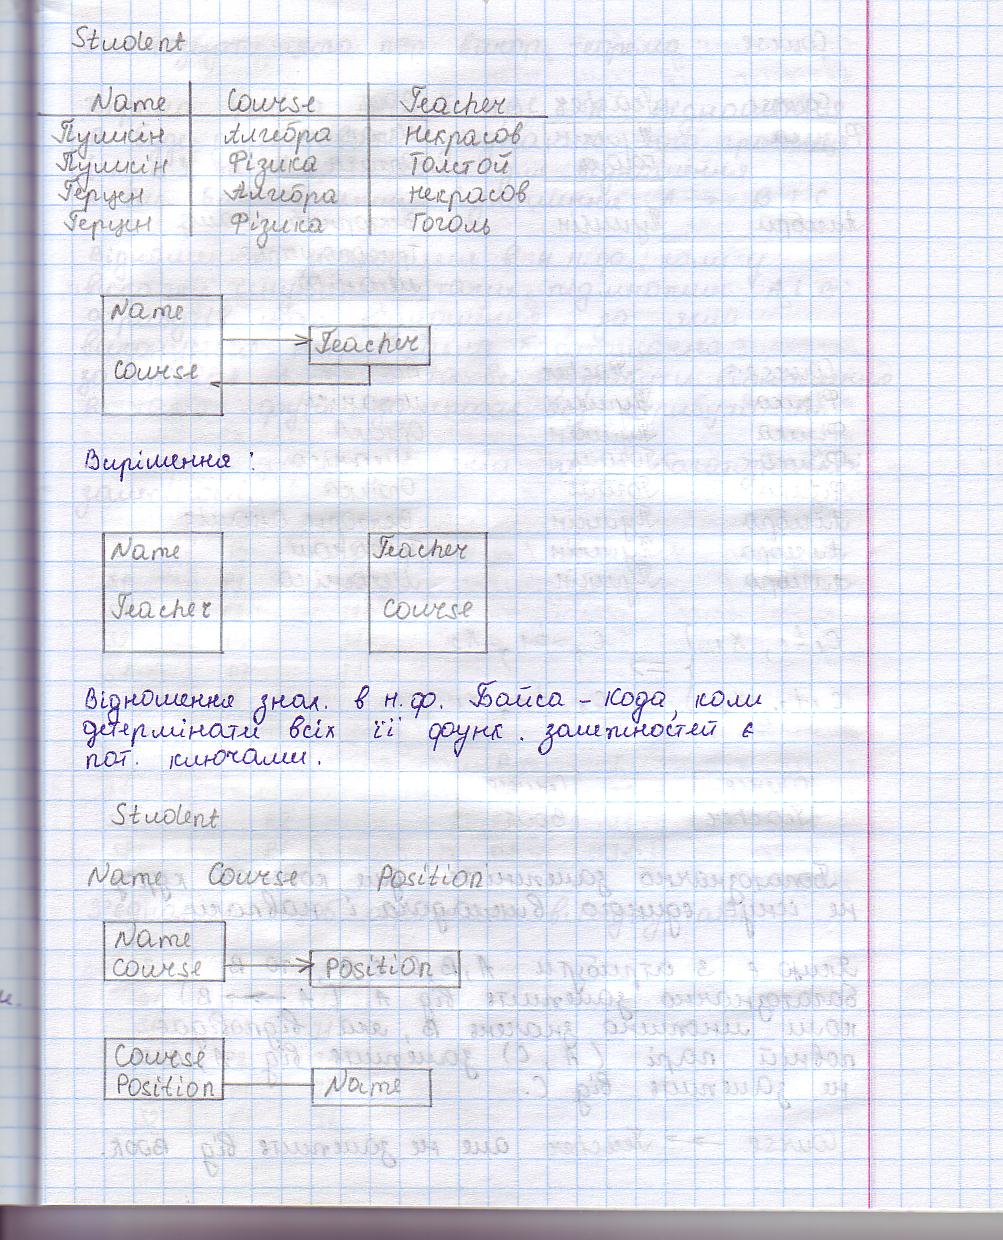 Student
Name Course Teacher
Пушкін Алгебра Некрасов
Пушкін Фізика Толстой
Герцен Алгебра Некрасов
Герцен Фізика Гоголь
Name
Teacher
Course
Вирішення :
Name Teacher
Teacher Course
Відношення знах. в н.ф. Бойса - Кода, коли
детермінати всіх її функ. залежностей є
пот. ключами.
Student
Name Course Position
Name
Course Position
Course
Position Name